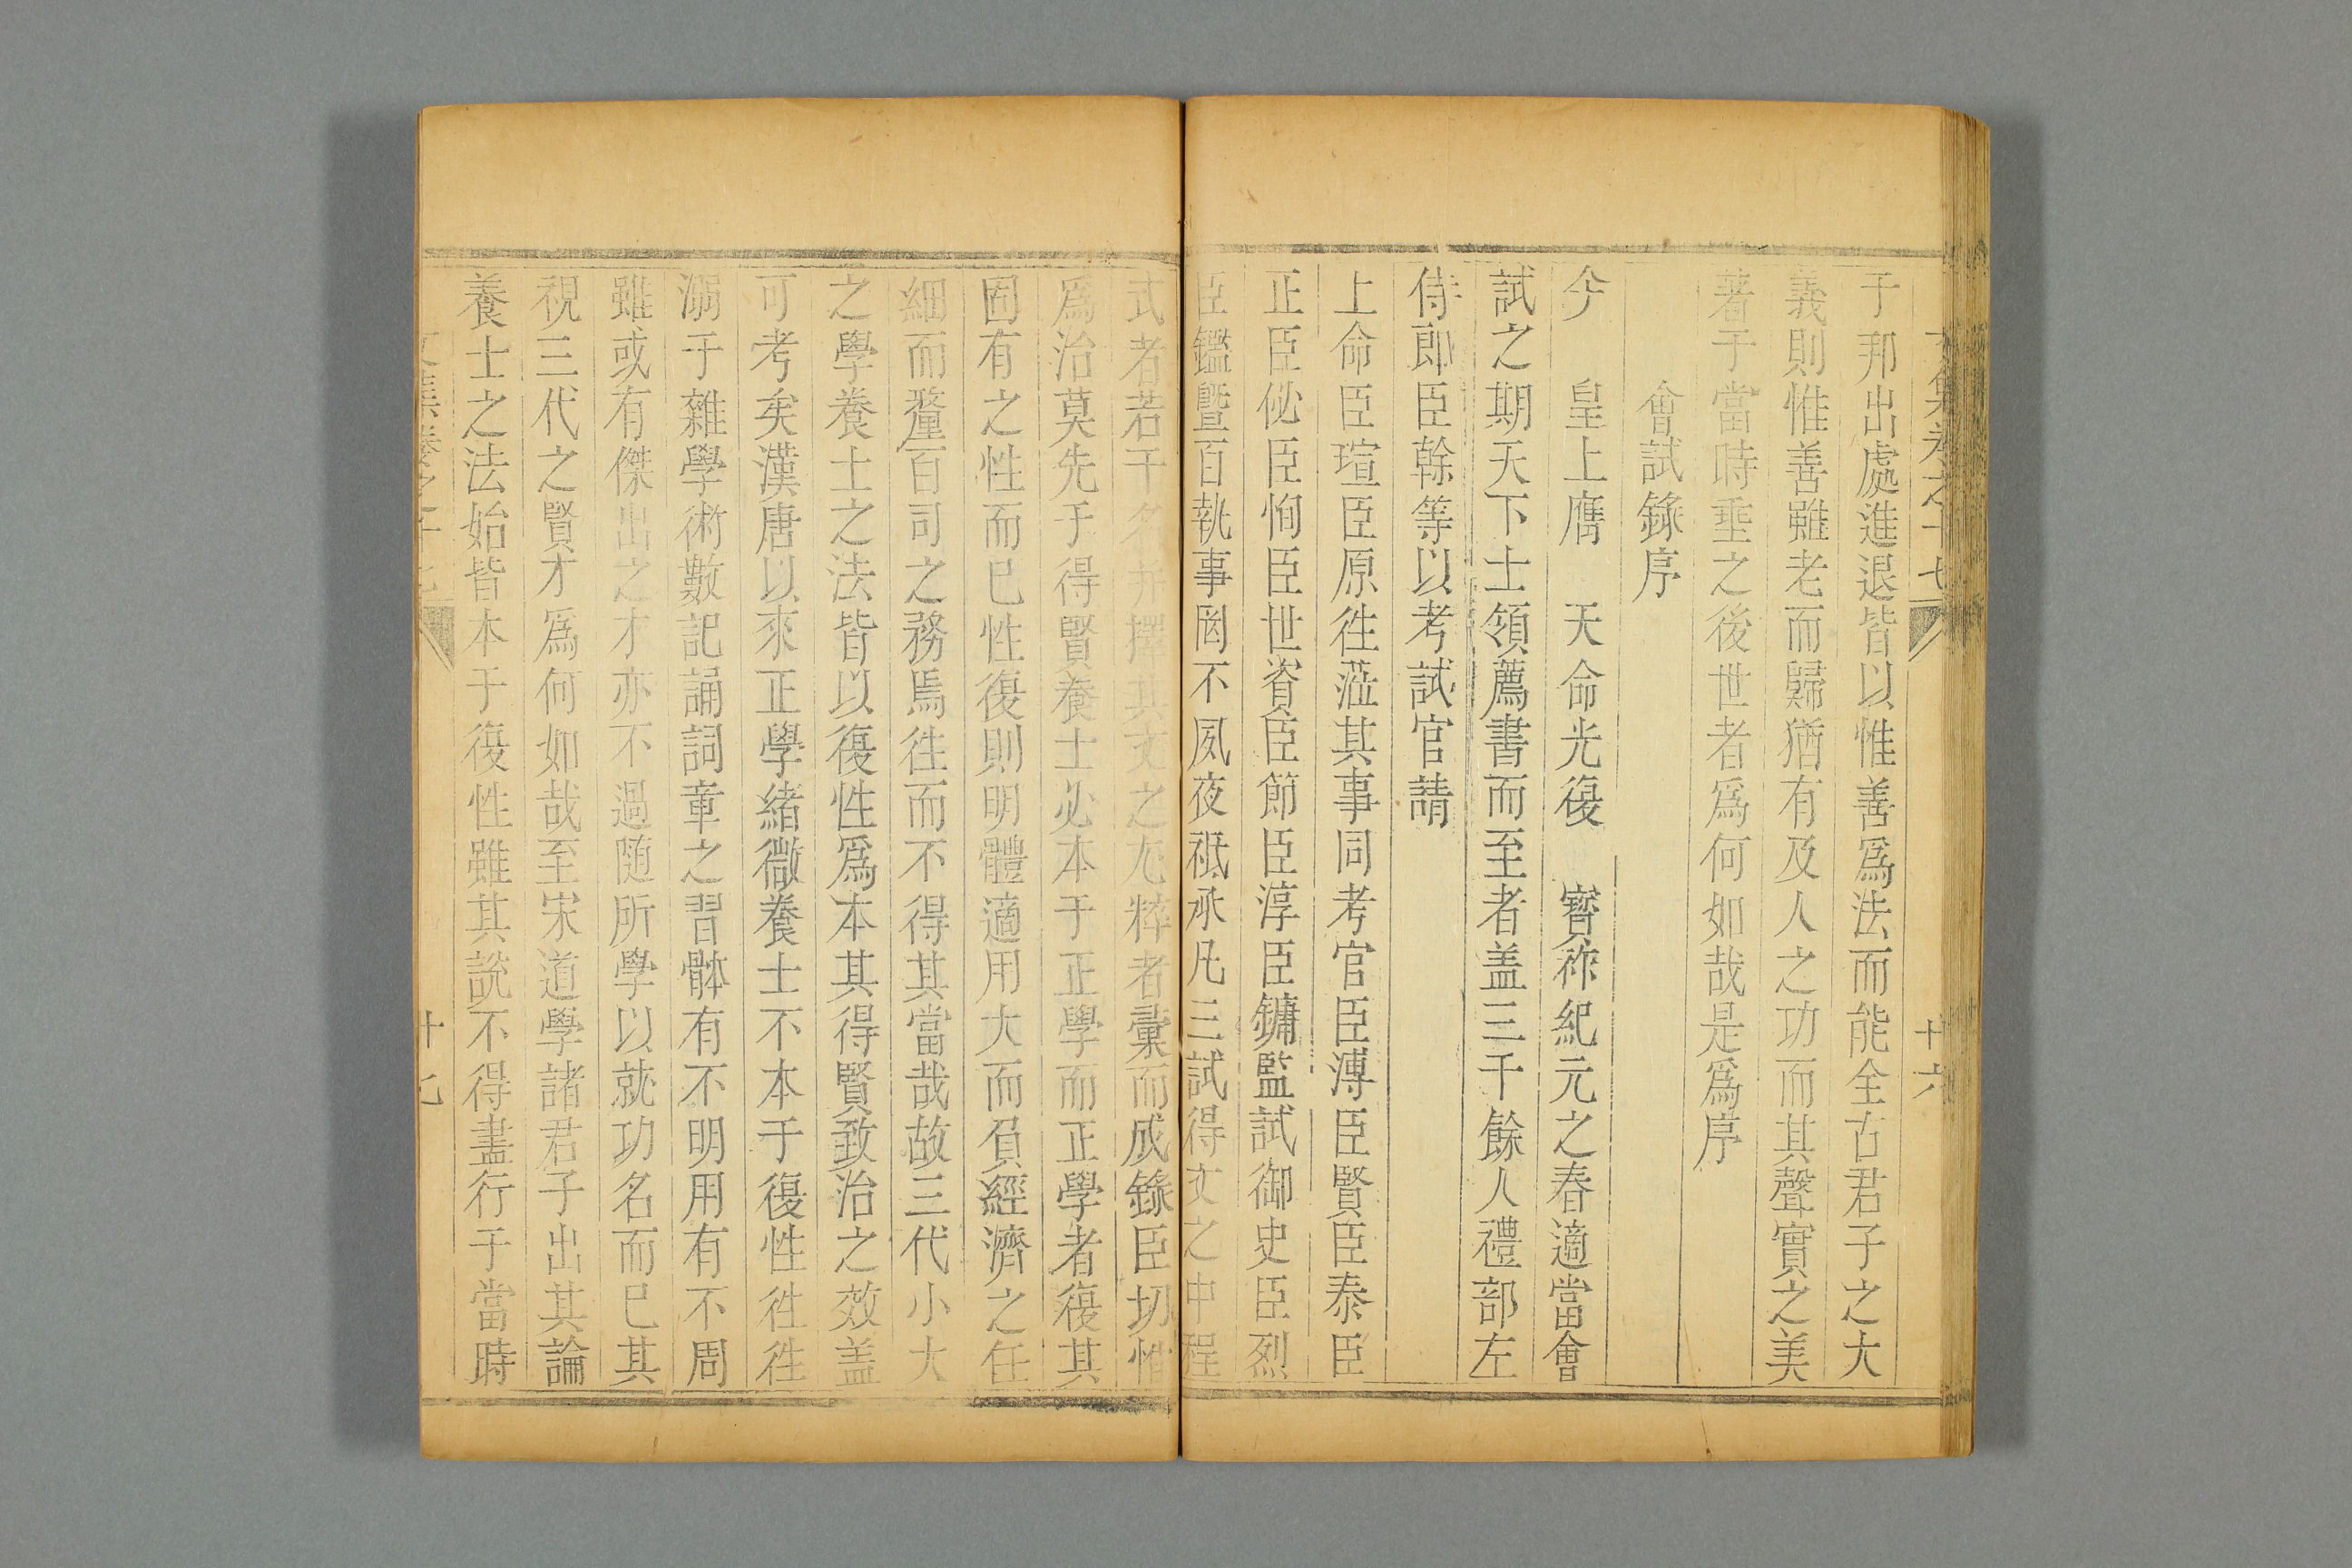 于邦出處進退皆以惟善爲法而能全古君子之大
義則惟善雖老而歸猶有及人之功而其聲實之美
著于當時垂之後世者爲何如哉是爲序
會試錄序
今 皇上膺 天命光復 寶祚紀元之春適當會
試之期天下士領薦書而至者盖三千餘人禮部左
侍郎臣幹等以考試官請
上命臣瑄臣原徃蒞其事同考官臣溥臣賢臣泰臣
正臣佖臣恂臣世資臣節臣淳臣鏞監試御史臣烈
臣鑑曁百執事罔不夙夜祗承凡三試得文之中程
式者若干名并擇其文之尤粹者彙而成錄臣切惟
爲治莫先于得賢養士必本于正學而正學者復其
固有之性而已性復則明體適用大而負經濟之任
細而釐百司之務焉徃而不得其當哉故三代小大
之學養士之法皆以復性爲本其得賢致治之效盖
可考矣漢唐以來正學緒微養士不本于復性徃徃
溺于雜學術數記誦詞章之習體有不明用有不周
雖或有傑出之才亦不過随所學以就功名而已其
視三代之賢才爲何如哉至宋道學諸君子出其論
養士之法始皆本于復性雖其說不得盡行于當時
文集卷之十七
十六
文集卷之十七
十七